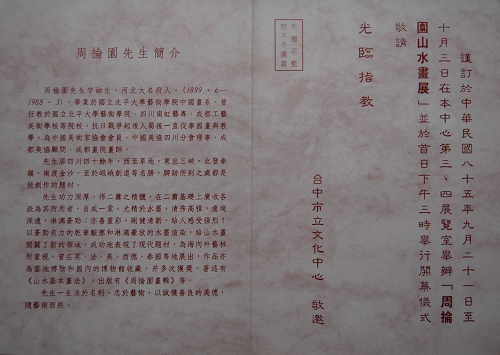 謹訂於中華民國八十五年九月二十一日至
十月三日在本中心第三、四展覽室舉辦「周掄
園山水畫展」並於首日下午三時舉行開幕儀式
敬請
光臨指教
台中市立文化中心 敬邀
花圈花籃
恕不予擺置
周掄園先生簡介
周掄園先生字幼生，河北大名府人。(1899．6—
1988．3)，畢業於國立北平大學藝術學院中國畫系。曾
任教於國立北平大學藝術學院、四川南虹藝專、成都工藝
美術學校等院校。抗日戰爭起後入蜀後一直從事國畫與教
學。為中國美術家協會會員、中國美協四川分會理事、成
都美協顧問、成都畫院畫師。
先生居四川四十餘年，西至草地，東出三峽，北登秦
嶺，南渡金沙，至於岷峨劍道等名勝，腳跡所到之處都是
他創作的題材。
先生功力深厚，得二蕭之精髓，在二蕭基礎上廣收各
派為其所用者，自成一家。尤精於水墨，清秀高雅，意境
深遠，淋漓蒼勁；亦善重彩，剛健清新，給人感受強烈。
以蒼勁有力的乾筆皴擦和淋漓豪放的水墨渲染，給山水畫
開闢了新的領域，成功地表現了現代題材，為海內外藝林
所重視。曾在英、法、美、西德、泰國等地展出，作品亦
為當地博物和國內的博物館收藏，并多次獲獎。著述有
《山水基本畫法》，出版有《周掄園畫輯》等。
先生一生淡於名利，忠於藝術，以誠樸善良的美德，
隨藝術而終。